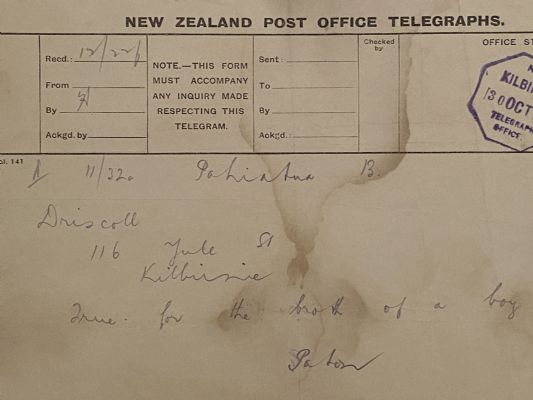 NEW ZEALAND POST OFFICE TELEGRAPHS.
Recd.: 12/22p
From
By
Ackgd. by
NOTE.—THIS FORM
MUST ACCOMPANY
ANY INQUIRY MADE
RESPECTING THIS
TELEGRAM.
Sent:
To
By
Ackgd.:
Checked
by
OFFICE ST
KILBI
30 OCT
TELEGRAPH
OFFICE
ol. 141
11/32a Pahiatua B.
Driscoll
116 Yule St
Kilbirnie
True for the broth of a boy
Paton